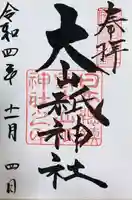 奉拝
大山祇神社
令和四年十一月四日